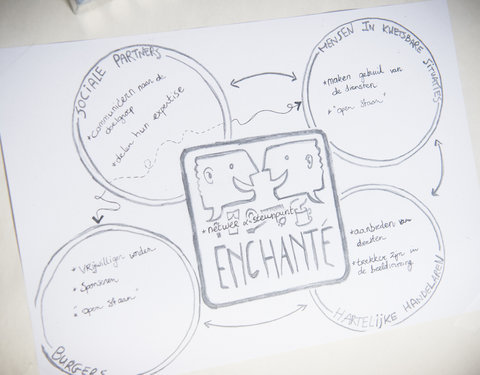 SOCIALE PARTNERS
* communiceren naar de
doelgroep
* delen hun expertise
MENSEN IN KWETSBARE SITUATIES
* maken gebruik van
de diensten
* "open staan"
ENCHANTÉ
* Vrijwilliger worden
* Sponsoren
* "open staan"
BURGERS
* aanbieden van
diensten
* trekker zijn in
de beeldvorming
HARTELIJKE HANDELAREN